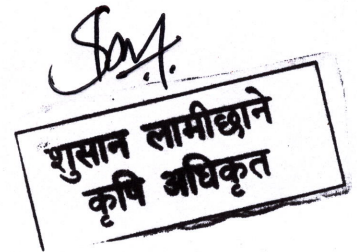 शुसान लामीछाने
कृषि अधिकृत